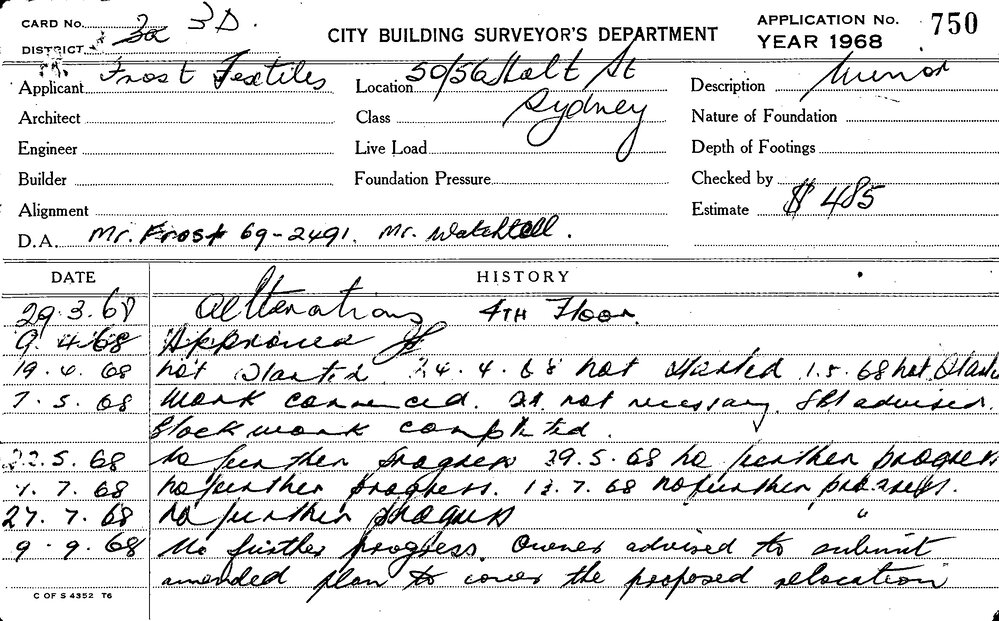 CARD No. 3a 3D.
DISTRICT
CITY BUILDING SURVEYOR'S DEPARTMENT
APPLICATION No. 750
YEAR 1968
Applicant Frost Textiles
Location 50/56 Holt St
Sydney
Description Minor
Architect
Class
Nature of Foundation
Engineer
Live Load
Depth of Footings
Builder
Foundation Pressure
Checked by
Alignment
Estimate $ 485
D.A. Mr. Frost 69-2491. Mr. Watchtell.
DATE HISTORY
29.3.68 Alterations 4TH Floor.
9.4.68 Approved
19.4.68 not started. 24.4.68 not started 1.5.68 not
7.5.68 Work commenced. not necessary. advised.
Block work completed.
22.5.68 No further progress 29.5.68 no further progress
1.7.68 no further progress. 12.7.68 no further progress.
27.7.68 no further progress "
9.9.68 No further progress. Owner advised to submit
amended plan to cover the proposed relocation
C OF S 4352 T6